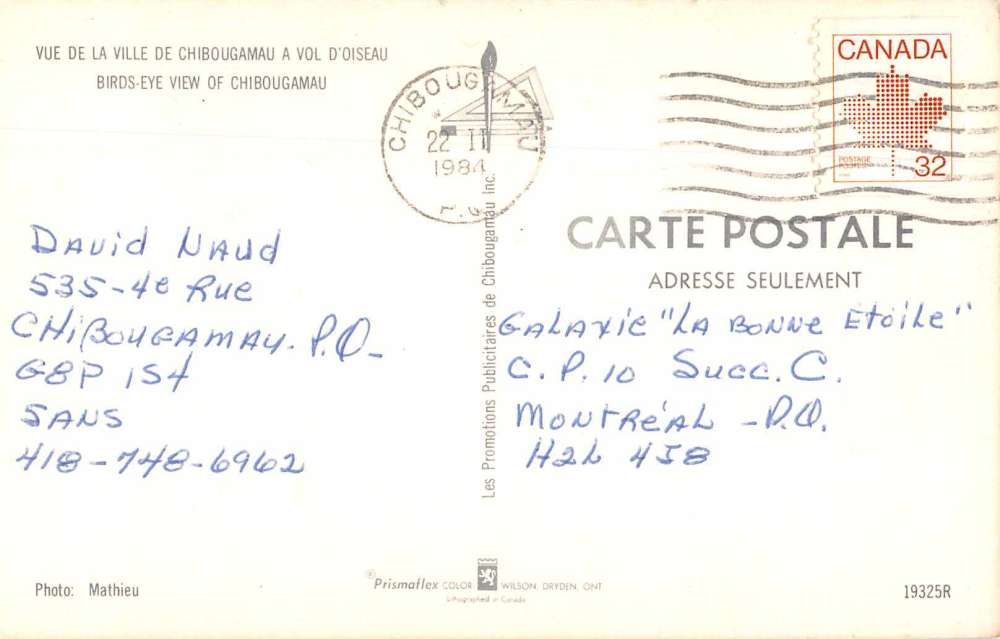 VUE DE LA VILLE DE CHIBOUGAMAU A VOL D'OISEAU
BIRDS-EYE VIEW OF CHIBOUGAMAU
CHIBOUGAMAU
22 II
1984
P.Q
CANADA
POSTAGE
32
CARTE POSTALE
ADRESSE SEULEMENT
DAVID NAUD
535-4e RUE
CHIBOUGAMAU. P.Q-
G8P 1S4
5 ANS
418-748-6962
Les Promotions Publicitaires de Chibougamau Inc.
GALAXIE "LA BONNE ETOILE"
C.P. 10 SUCC. C.
MONTRÉAL - P.Q.
H2L 4J8
Photo: Mathieu
Prismaflex COLOR WILSON, DRYDEN, ONT
Lithographed in Canada
19325R